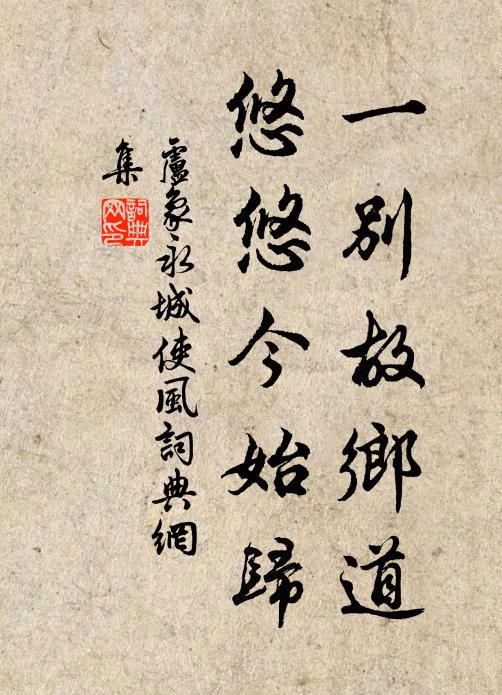 一别故鄉道
悠悠今始歸
盧象永城使風詞典網
集
詞典
网印